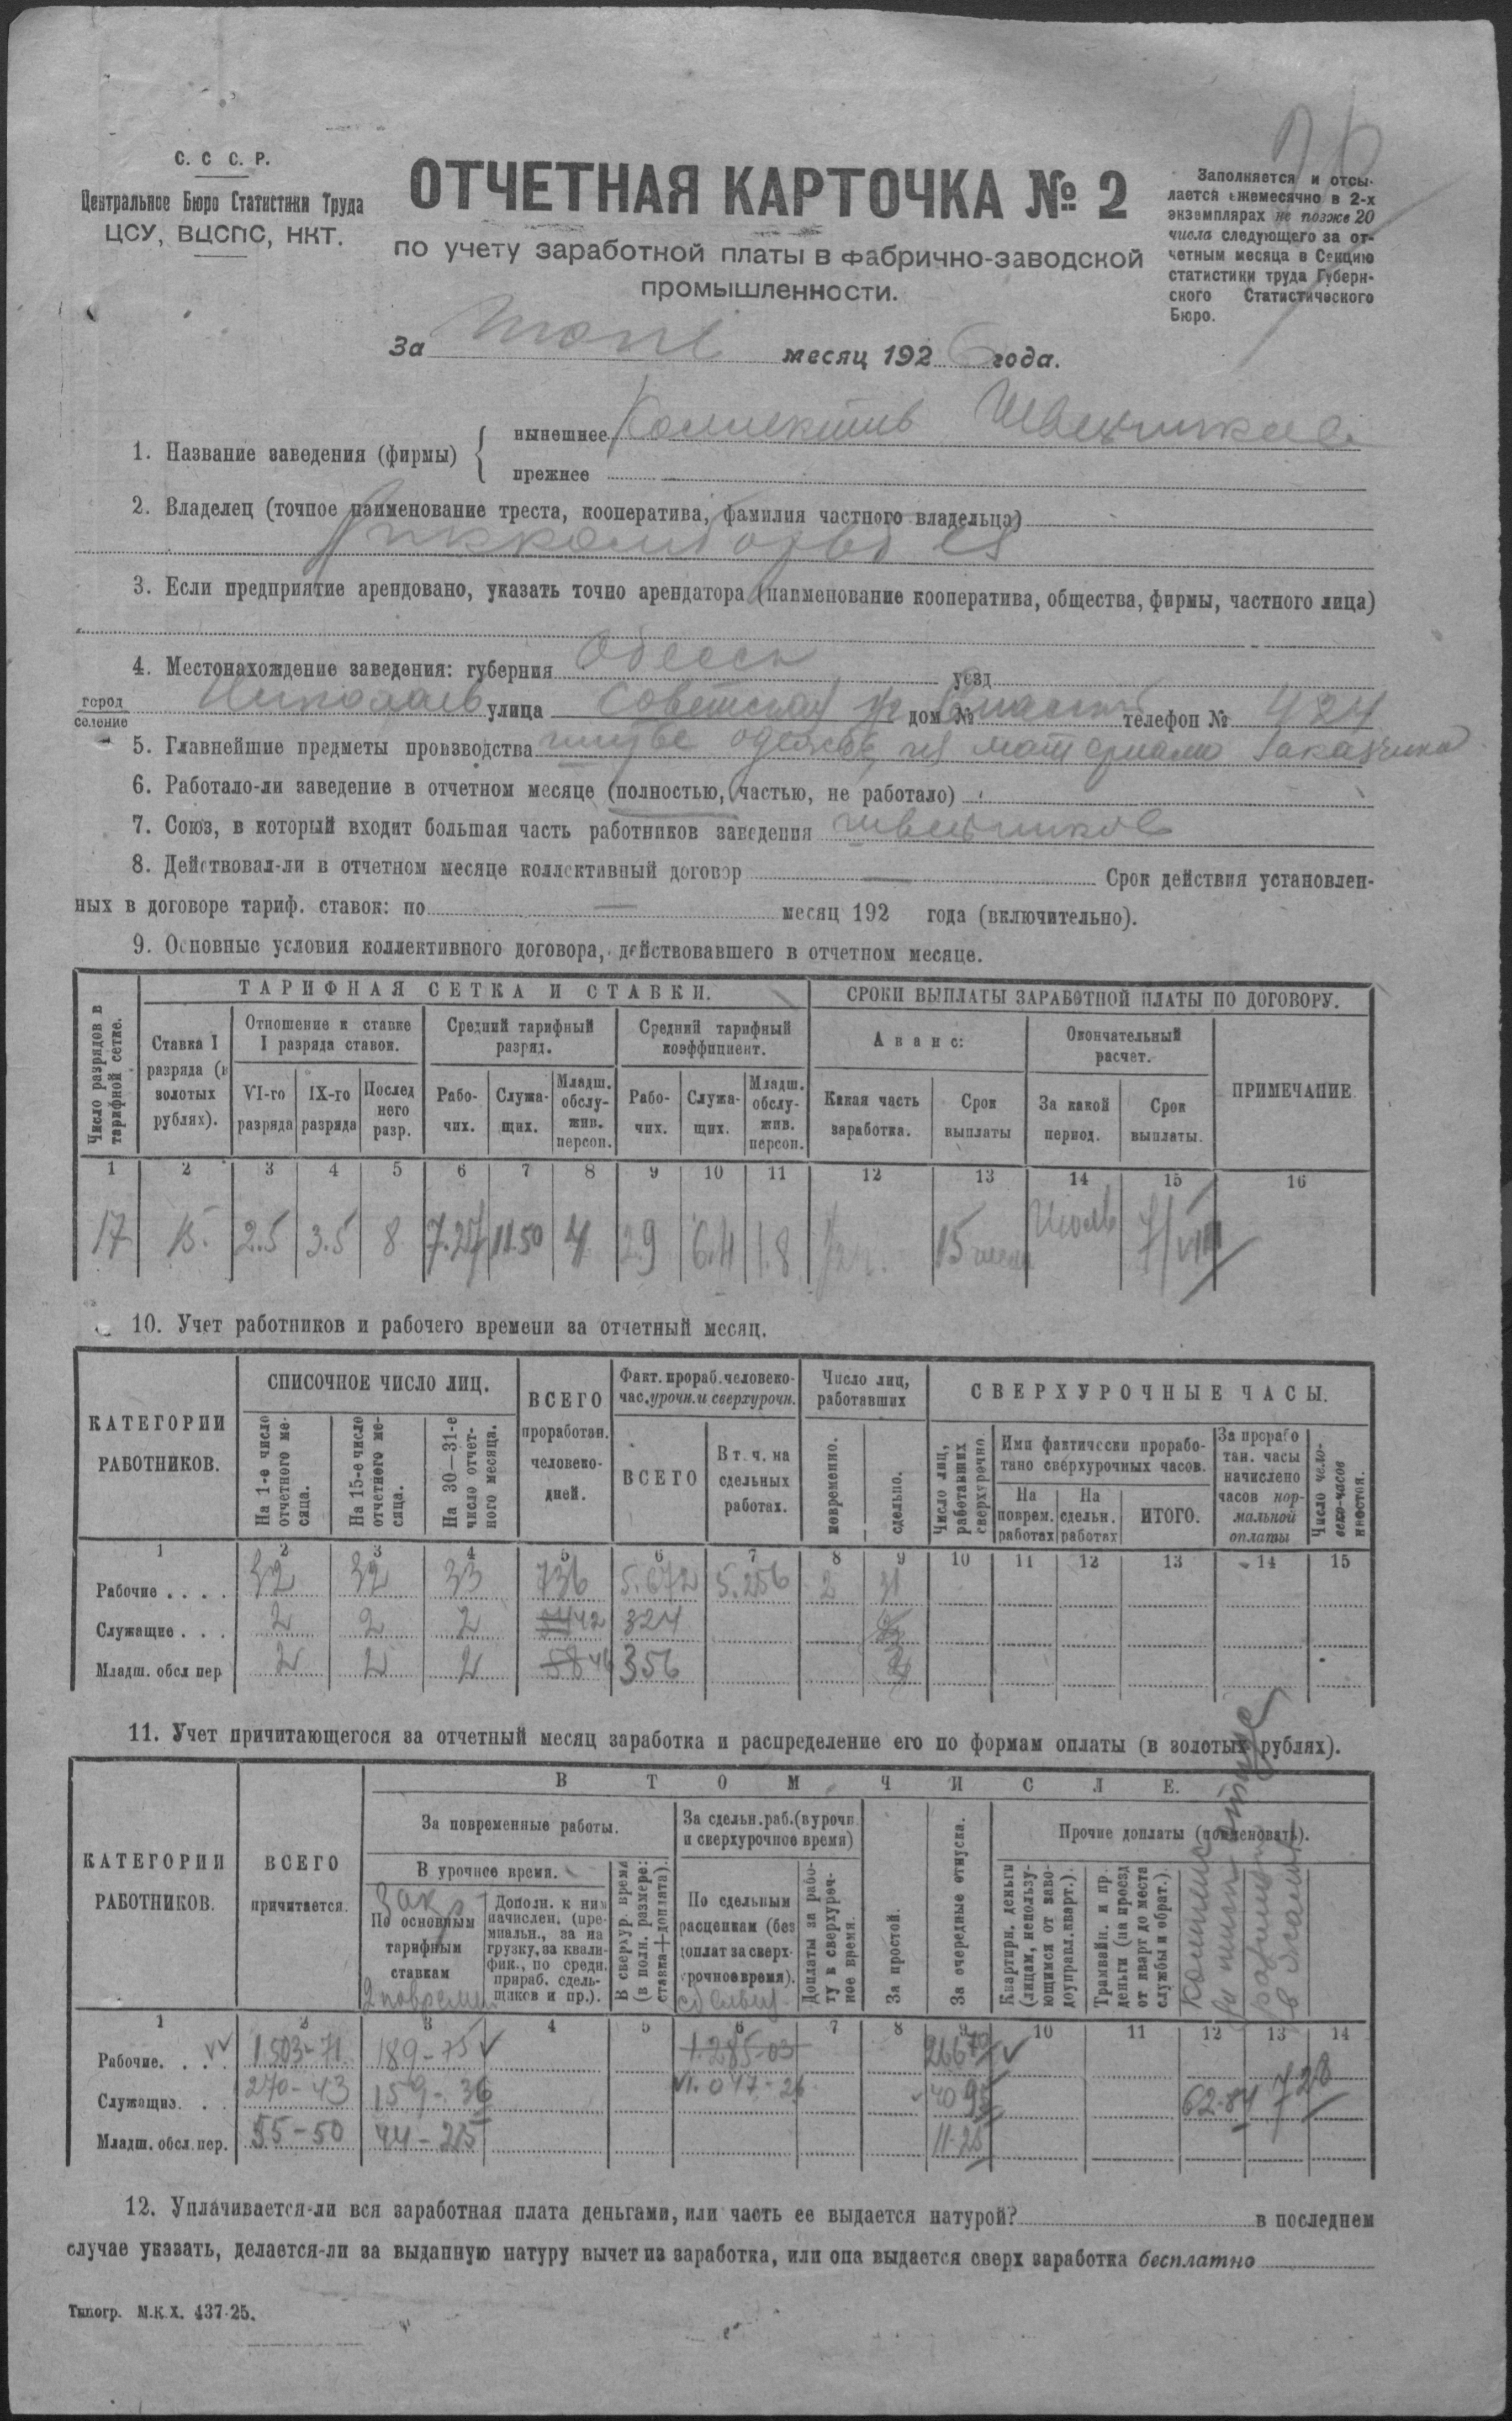 С. С С. Р.
Центральное Бюро Статистики Труда
ЦСУ, ВЦСПС, НКТ.
ОТЧЕТНАЯ КАРТОЧКА № 2
по учету заработной платы в фабрично-заводской
промышленности.
Заполняется и отсы-
лается ежемесячно в 2-х
экземплярах не позже 20
числа следующего за от-
четным месяца в Секцию
статистики труда Губерн-
ского Статистического
Бюро.
За месяц 1926 года.
1. Название заведения (фирмы)
нынешнее Коллектив Швейников
прежнее
2. Владелец (точное наименование треста, кооператива, фамилия частного владельца)
3. Если предприятие арендовано, указать точно арендатора (наименование кооператива, общества, фирмы, частного лица)
4. Местонахождение заведения: губерния Одесск уезд
город
селение Николаев улица Советская дом № телефон № 424
5. Главнейшие предметы производства одежов, из материала заказчика
6. Работало-ли заведение в отчетном месяце (полностью, частью, не работало)
7. Союз, в который входит большая часть работников заведения швейников
8. Действовал-ли в отчетном месяце коллективный договор — Срок действия установлен-
ных в договоре тариф. ставок: по — месяц 192 года (включительно).
9. Основные условия коллективного договора, действовавшего в отчетном месяце.
Число разрядов в тарифной сетке.
ТАРИФНАЯ СЕТКА И СТАВКИ.
СРОКИ ВЫПЛАТЫ ЗАРАБОТНОЙ ПЛАТЫ ПО ДОГОВОРУ.
Ставка I разряда (в золотых рублях).
Отношение к ставке I разряда ставок.
Средний тарифный разряд.
Средний тарифный коэффициент.
Аванс:
Окончательный расчет.
ПРИМЕЧАНИЕ.
VI-го разряда
IX-го разряда
Последнего разр.
Рабо-чих.
Служа-щих.
Младш. обслу-жив. персон.
Рабо-чих.
Служа-щих.
Младш. обслу-жив. персон.
Какая часть заработка.
Срок выплаты
За какой период.
Срок выплаты.
1 2 3 4 5 6 7 8 9 10 11 12 13 14 15 16
17 15. 2.5 3.5 8 7.27 11.50 4 2.9 6.4 1.8 15 Июль 7/VIII
10. Учет работников и рабочего времени за отчетный месяц.
КАТЕГОРИИ РАБОТНИКОВ.
СПИСОЧНОЕ ЧИСЛО ЛИЦ.
На 1-е число отчетного ме-сяца.
На 15-е число отчетного ме-сяца.
На 30—31-е число отчет-ного месяца.
ВСЕГО проработан. человеко-дней.
Факт. прораб. человеко-час. урочн. и сверхурочн.
ВСЕГО
В т. ч. на сдельных работах.
Число лиц, работавших
повременно.
сдельно.
СВЕРХУРОЧНЫЕ ЧАСЫ.
Число лиц, работавших сверхурочно
Ими фактически прорабо-тано сверхурочных часов.
На поврем. работах
На сдельн. работах
ИТОГО.
За прорабо тан. часы начислено часов нор-мальной оплаты
Число чело-веко-часов простоя.
1 2 3 4 5 6 7 8 9 10 11 12 13 14 15
Рабочие . . . . 32 32 33 736 5.672 5.256 2 31
Служащие . . . 2 2 2 42 324
Младш. обсл пер 2 2 2 58 46 356
11. Учет причитающегося за отчетный месяц заработка и распределение его по формам оплаты (в золотых рублях).
КАТЕГОРИИ РАБОТНИКОВ.
ВСЕГО причитается.
В ТОМ ЧИСЛЕ.
За повременные работы.
В урочное время.
По основным тарифным ставкам
Дополн. к ним начислен. (пре-миальн., за на грузку, за квали-фик., по средн. прираб. сдель-щиков и пр.).
В сверхур. время (в полн. размере: ставка+доплата).
За сдельн. раб. (в урочн. и сверхурочное время)
По сдельным расценкам (без доплат за сверх-урочное время).
Доплаты за рабо-ту в сверхуроч-ное время.
За простой.
За очередные отпуска.
Прочие доплаты (поименовать).
Квартирн. деньги (лицам, непользу-ющимся от заво-доуправл. кварт.).
Трамвайн. и пр. деньги (на проезд от кварт до места службы и обрат.).
1 2 3 4 5 6 7 8 9 10 11 12 13 14
Рабочие. . . . 1503-71 189-75 1.285-03 266 70
Служащие. . . 270-43 159-36 1.047-26 40 95 62-84 7 28
Младш. обсл. пер. 55-50 44-25 11-25
12. Уплачивается-ли вся заработная плата деньгами, или часть ее выдается натурой? в последнем
случае указать, делается-ли за выданную натуру вычет из заработка, или она выдается сверх заработка бесплатно
Типогр. М.К.Х. 437-25.